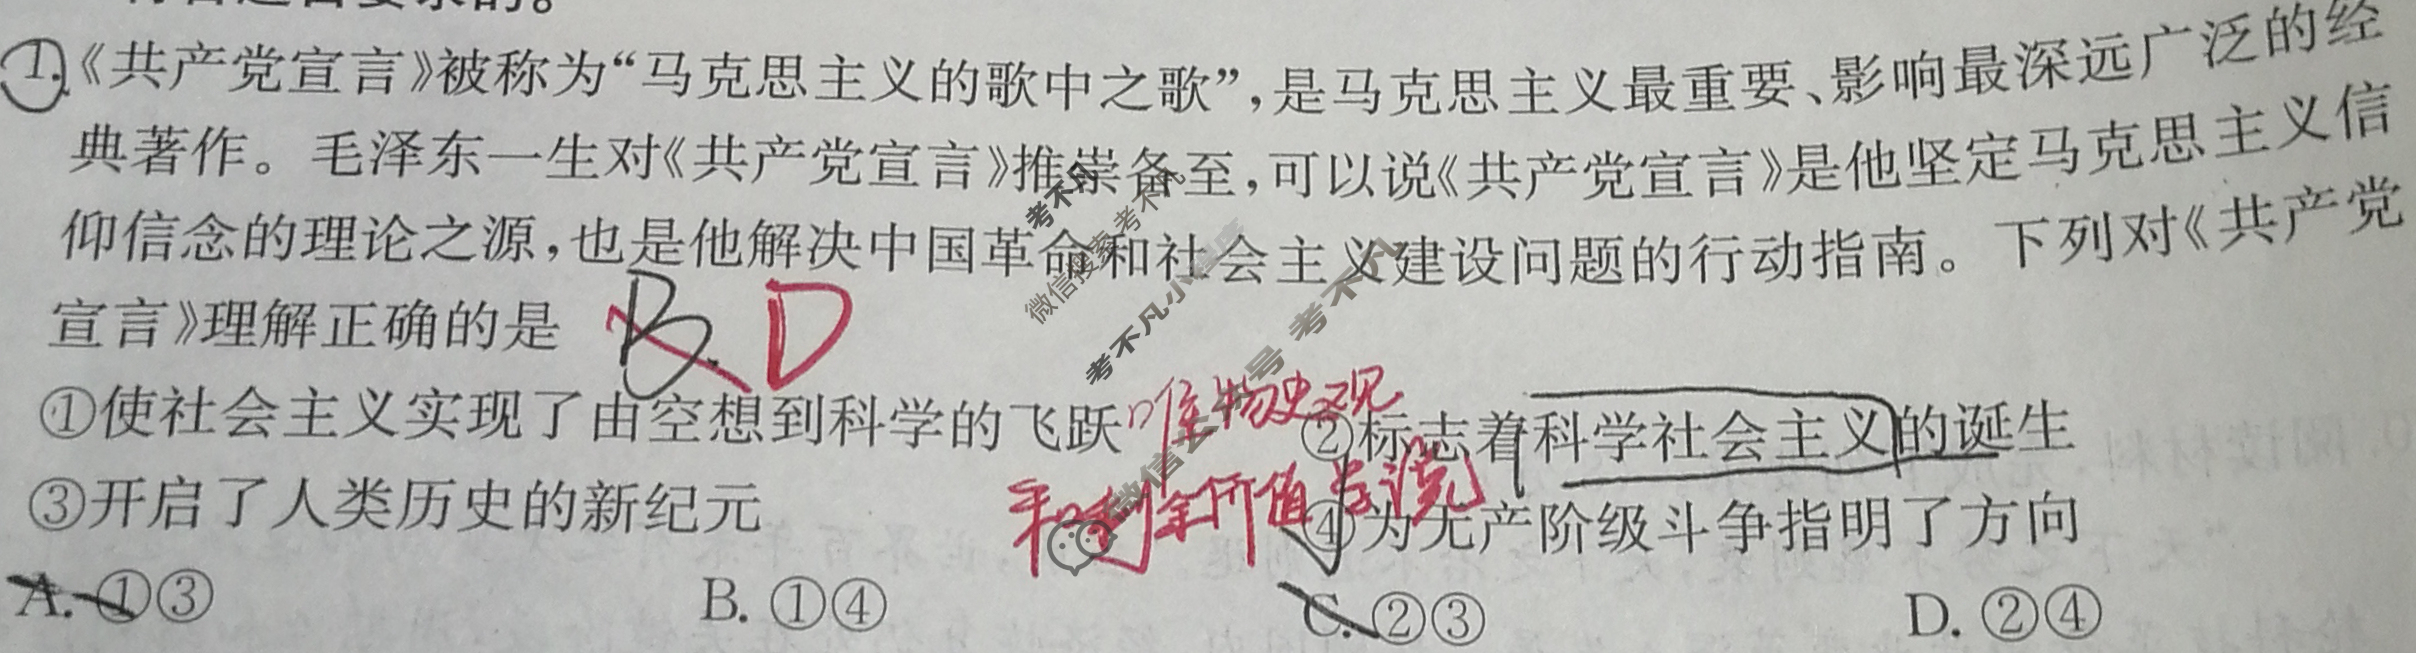 符合题目要求的。
1.《共产党宣言》被称为“马克思主义的歌中之歌”,是马克思主义最重要、影响最深远广泛的经
典著作。毛泽东一生对《共产党宣言》推崇备至,可以说《共产党宣言》是他坚定马克思主义信
仰信念的理论之源,也是他解决中国革命和社会主义建设问题的行动指南。下列对《共产党
宣言》理解正确的是 B. D
①使社会主义实现了由空想到科学的飞跃 唯物史观 ②标志着科学社会主义的诞生
③开启了人类历史的新纪元 和剩余价值学说 ④为无产阶级斗争指明了方向
A. ①③ B. ①④ C. ②③ D. ②④
考不凡
微信搜索考不凡
考不凡小程序
微信公众号 考不凡